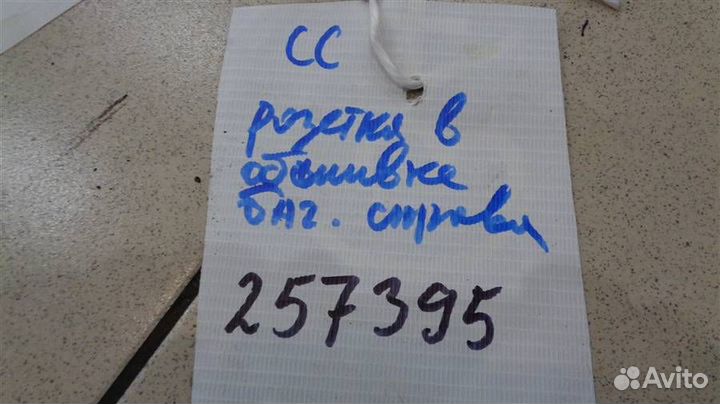 СС
розетка в
обшивке
баг. справа
257395
Avito